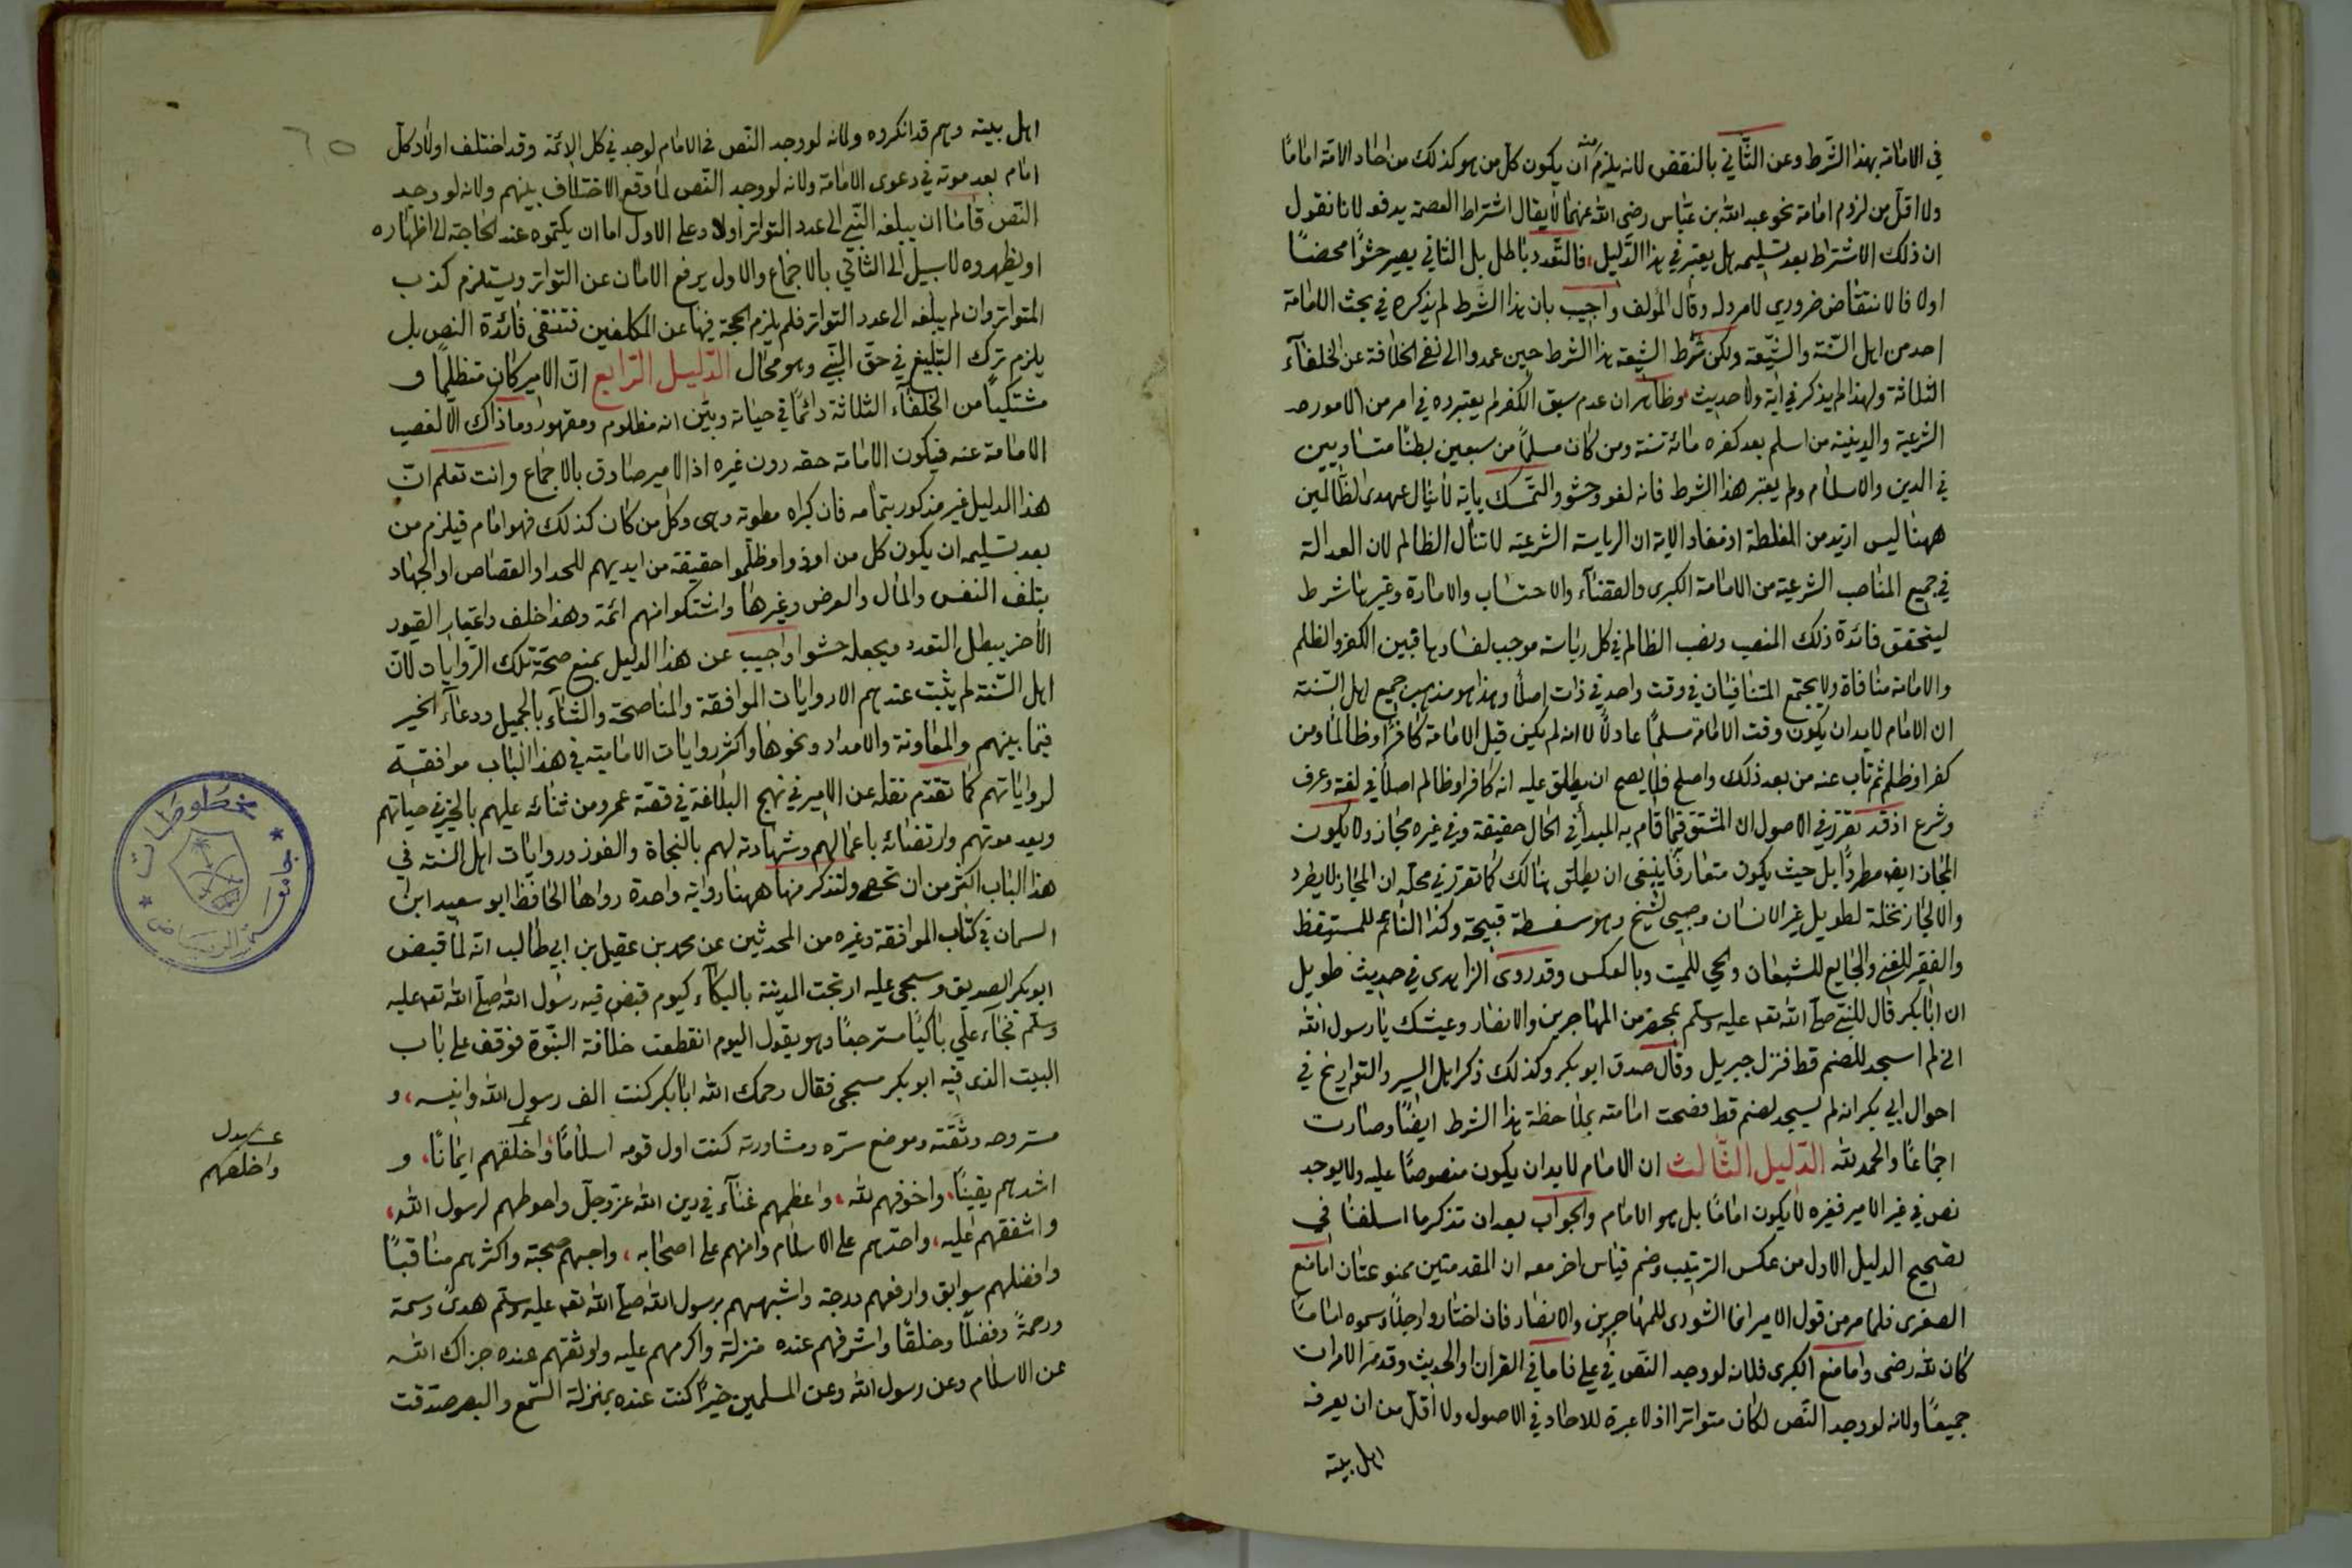 في الامامة بهذا الشرط وعن الثاني بالنقض لانه يلزم منه ان يكون كل من هو كذلك من احاد الامة اماما
ولا اقل من لزوم امامة نحو عبد الله بن عباس رضى الله عنهما لا يقال اشتراط العصمة يدفعه لانا نقول
ان ذلك الاشتراط بعد تسليمه هل يعتبر في هذا الدليل، فالتعدد باطل بل الثاني يصير حشوا محضا
اولا فالانتقاض ضروري لامرد له وقال المؤلف واجيب بان هذا الشرط لم يذكره في بحث الامامة
احد من اهل السنة والشيعة ولكن شرط الشيعة هذا الشرط حين عمدوا الى نفي الخلافة عن الخلفآء
الثلاثة ولهذا لم يذكر في اية ولا حديث، وظاهر ان عدم سبق الكفر لم يعتبروه في امر من الامور
الشرعية والدينية من اسلم بعد كفره مائة سنة ومن كان مسلما من سبعين بطنا متساويين
في الدين والاسلام ولم يعتبر هذا الشرط فانه لغو وحشو والتمسك باية لا ينال عهدى الظالمين
ههنا ليس ازيد من المغلطة اذ مفاد الاية ان الرياسة الشرعية لا تنال الظالم لان العدالة
في جميع المناصب الشرعية من الامامة الكبرى والقضآء والاحتساب والامارة وغيرها شرط
ليتحقق فائدة ذلك المنصب ونصب الظالم في كل رياسة موجب لفسادها فبين الكفر والظلم
والامامة منافاة ولا يجتمع المتنافيان في وقت واحد في ذات اصلا وهذا هو مذهب جميع اهل السنة
ان الامام لابد ان يكون وقت الامامة مسلما عادلا لا انه لم يكن قبل الامامة كافرا وظالما ومن
كفر او ظلم ثم تاب عنه من بعد ذلك واصلح فلا يصح ان يطلق عليه انه كافر او ظالم اصلا في لغة وعرف
وشرع اذ قد تقرر في الاصول ان المشتق فيما قام به المبدأ في الحال حقيقة وفي غيره مجاز ولا يكون
المجاز ايضا مطردا بل حيث يكون متعارفا ينبغي ان يطلق هنالك كما تقرر في محله ان المجاز لا يطرد
والا لجاز نخلة لطويل غير الانسان وصبي لشيخ وهو سفسطة قبيحة وكذا النائم للمستيقظ
والفقير للغني والجايع للشبعان والحي للميت وبالعكس وقد روى الزاهدى في حديث طويل
ان ابا بكر قال للنبي صلى الله تعه عليه وسلم بمحضر من المهاجرين والانصار وعيشك يا رسول الله
اني لم اسجد للصنم قط فنزل جبريل وقال صدق ابو بكر وكذلك ذكر اهل السير والتواريخ في
احوال ابي بكر انه لم يسجد لصنم قط فصحت امامته بملاحظة هذا الشرط ايضا وصارت
اجماعا والحمد لله الدليل الثالث ان الامام لابد ان يكون منصوصا عليه ولا يوجد
نص في غير الامير فغيره لا يكون اماما بل هو الامام والجواب بعد ان تذكر ما اسلفنا في
تصحيح الدليل الاول من عكس الترتيب وضم قياس اخر معه ان المقدمتين ممنوعتان اما منع
الصغرى فلما مر من قول الامير انما الشورى للمهاجرين والانصار فان اختاروا رجلا وسموه اماما
كان لله رضى واما منع الكبرى فلانه لو وجد النص في علي فاما في القرآن او الحديث وقد مر الامران
جميعا ولانه لو وجد النص لكان متواترا اذ لا عبرة للاحاد في الاصول ولا اقل من ان يعرف
اهل بيته
٦٥
اهل بيته وهم قد انكروه ولانه لو وجد النص في الامام لوجد في كل الائمة وقد اختلف اولاد كل
امام بعد موته في دعوى الامامة ولانه لو وجد النص لما وقع الاختلاف بينهم ولانه لو وجد
النص فاما ان يبلغه النبي الى عدد التواتر اولا وعلى الاول اما ان يكتموه عند الحاجة الى اظهاره
او يظهروه لا سبيل الى الثاني بالاجماع والاول يرفع الامان عن التواتر ويستلزم كذب
المتواتر وان لم يبلغه الى عدد التواتر فلم يلزم الحجة فيها عن المكلفين فتنتفى فائدة النص بل
يلزم ترك التبليغ في حق النبي وهو محال الدليل الرابع ان الامير كان متظلما و
مشتكيا من الخلفآء الثلاثة دائما في حياته وبين انه مظلوم ومقهور وما ذاك الا لغصب
الامامة عنه فيكون الامامة حقه دون غيره اذ الامير صادق بالاجماع وانت تعلم ان
هذا الدليل غير مذكور بتمامه فان كبراه مطوية وهى وكل من كان كذلك فهو امام فيلزم من
بعد تسليمه ان يكون كل من اوذوا وظلموا حقيقة من ايديهم للحد او القصاص او الجهاد
بتلف النفس والمال والعرض وغيرها واشتكوا انهم ائمة وهذا خلف واعتبار القيود
الأخر يبطل التعدد ويجعله حشوا واجيب عن هذا الدليل بمنع صحة تلك الروايات لان
اهل السنة لم يثبت عندهم الا روايات الموافقة والمناصحة والثنآء بالجميل ودعآء الخير
فيما بينهم والمعاونة والامداد ونحوها واكثر روايات الامامية في هذا الباب موافقة
لرواياتهم كما تقدم نقله عن الامير في نهج البلاغة في قصة عمر ومن ثنائه عليهم بالخير في حياتهم
وبعد موتهم وارتضائه باعمالهم وشهادته لهم بالنجاة والفوز وروايات اهل السنة في
هذا الباب اكثر من ان تحصى ولنذكر منها ههنا رواية واحدة رواها الحافظ ابو سعيد ابن
السمان في كتاب الموافقة وغيره من المحدثين عن محمد بن عقيل بن ابي طالب انه لما قبض
ابو بكر الصديق وسجى عليه ارتجت المدينة بالبكآء كيوم قبض فيه رسول الله صلى الله تعه عليه
وسلم فجآء علي باكيا مسترجعا وهو يقول اليوم انقطعت خلافة النبوة فوقف على باب
البيت الذى فيه ابو بكر مسجى فقال رحمك الله ابا بكر كنت الف رسول الله وانيسه، و
مستروحه وثقته وموضع سره ومشاورته كنت اول قومه اسلاما، واخلقهم ايمانا، و
اشدهم يقينا، واخوفهم لله، واعظمهم غنآء في دين الله عز وجل واحوطهم لرسول الله،
واشفقهم عليه، واحدبهم على الاسلام وامنهم على اصحابه، واحبهم صحبة واكثرهم مناقبا
وافضلهم سوابق وارفعهم درجة واشبههم برسول الله صلى الله تعه عليه وسلم هدى وسمة
ورحمة وفضلا وخلقا واشرفهم عنده منزلة واكرمهم عليه واوثقهم عنده جزاك الله
عن الاسلام وعن رسول الله وعن المسلمين خيرا كنت عنده بمنزلة السمع والبصر صدقت
واخلصهم
مخطوطات
جامعة الرياض